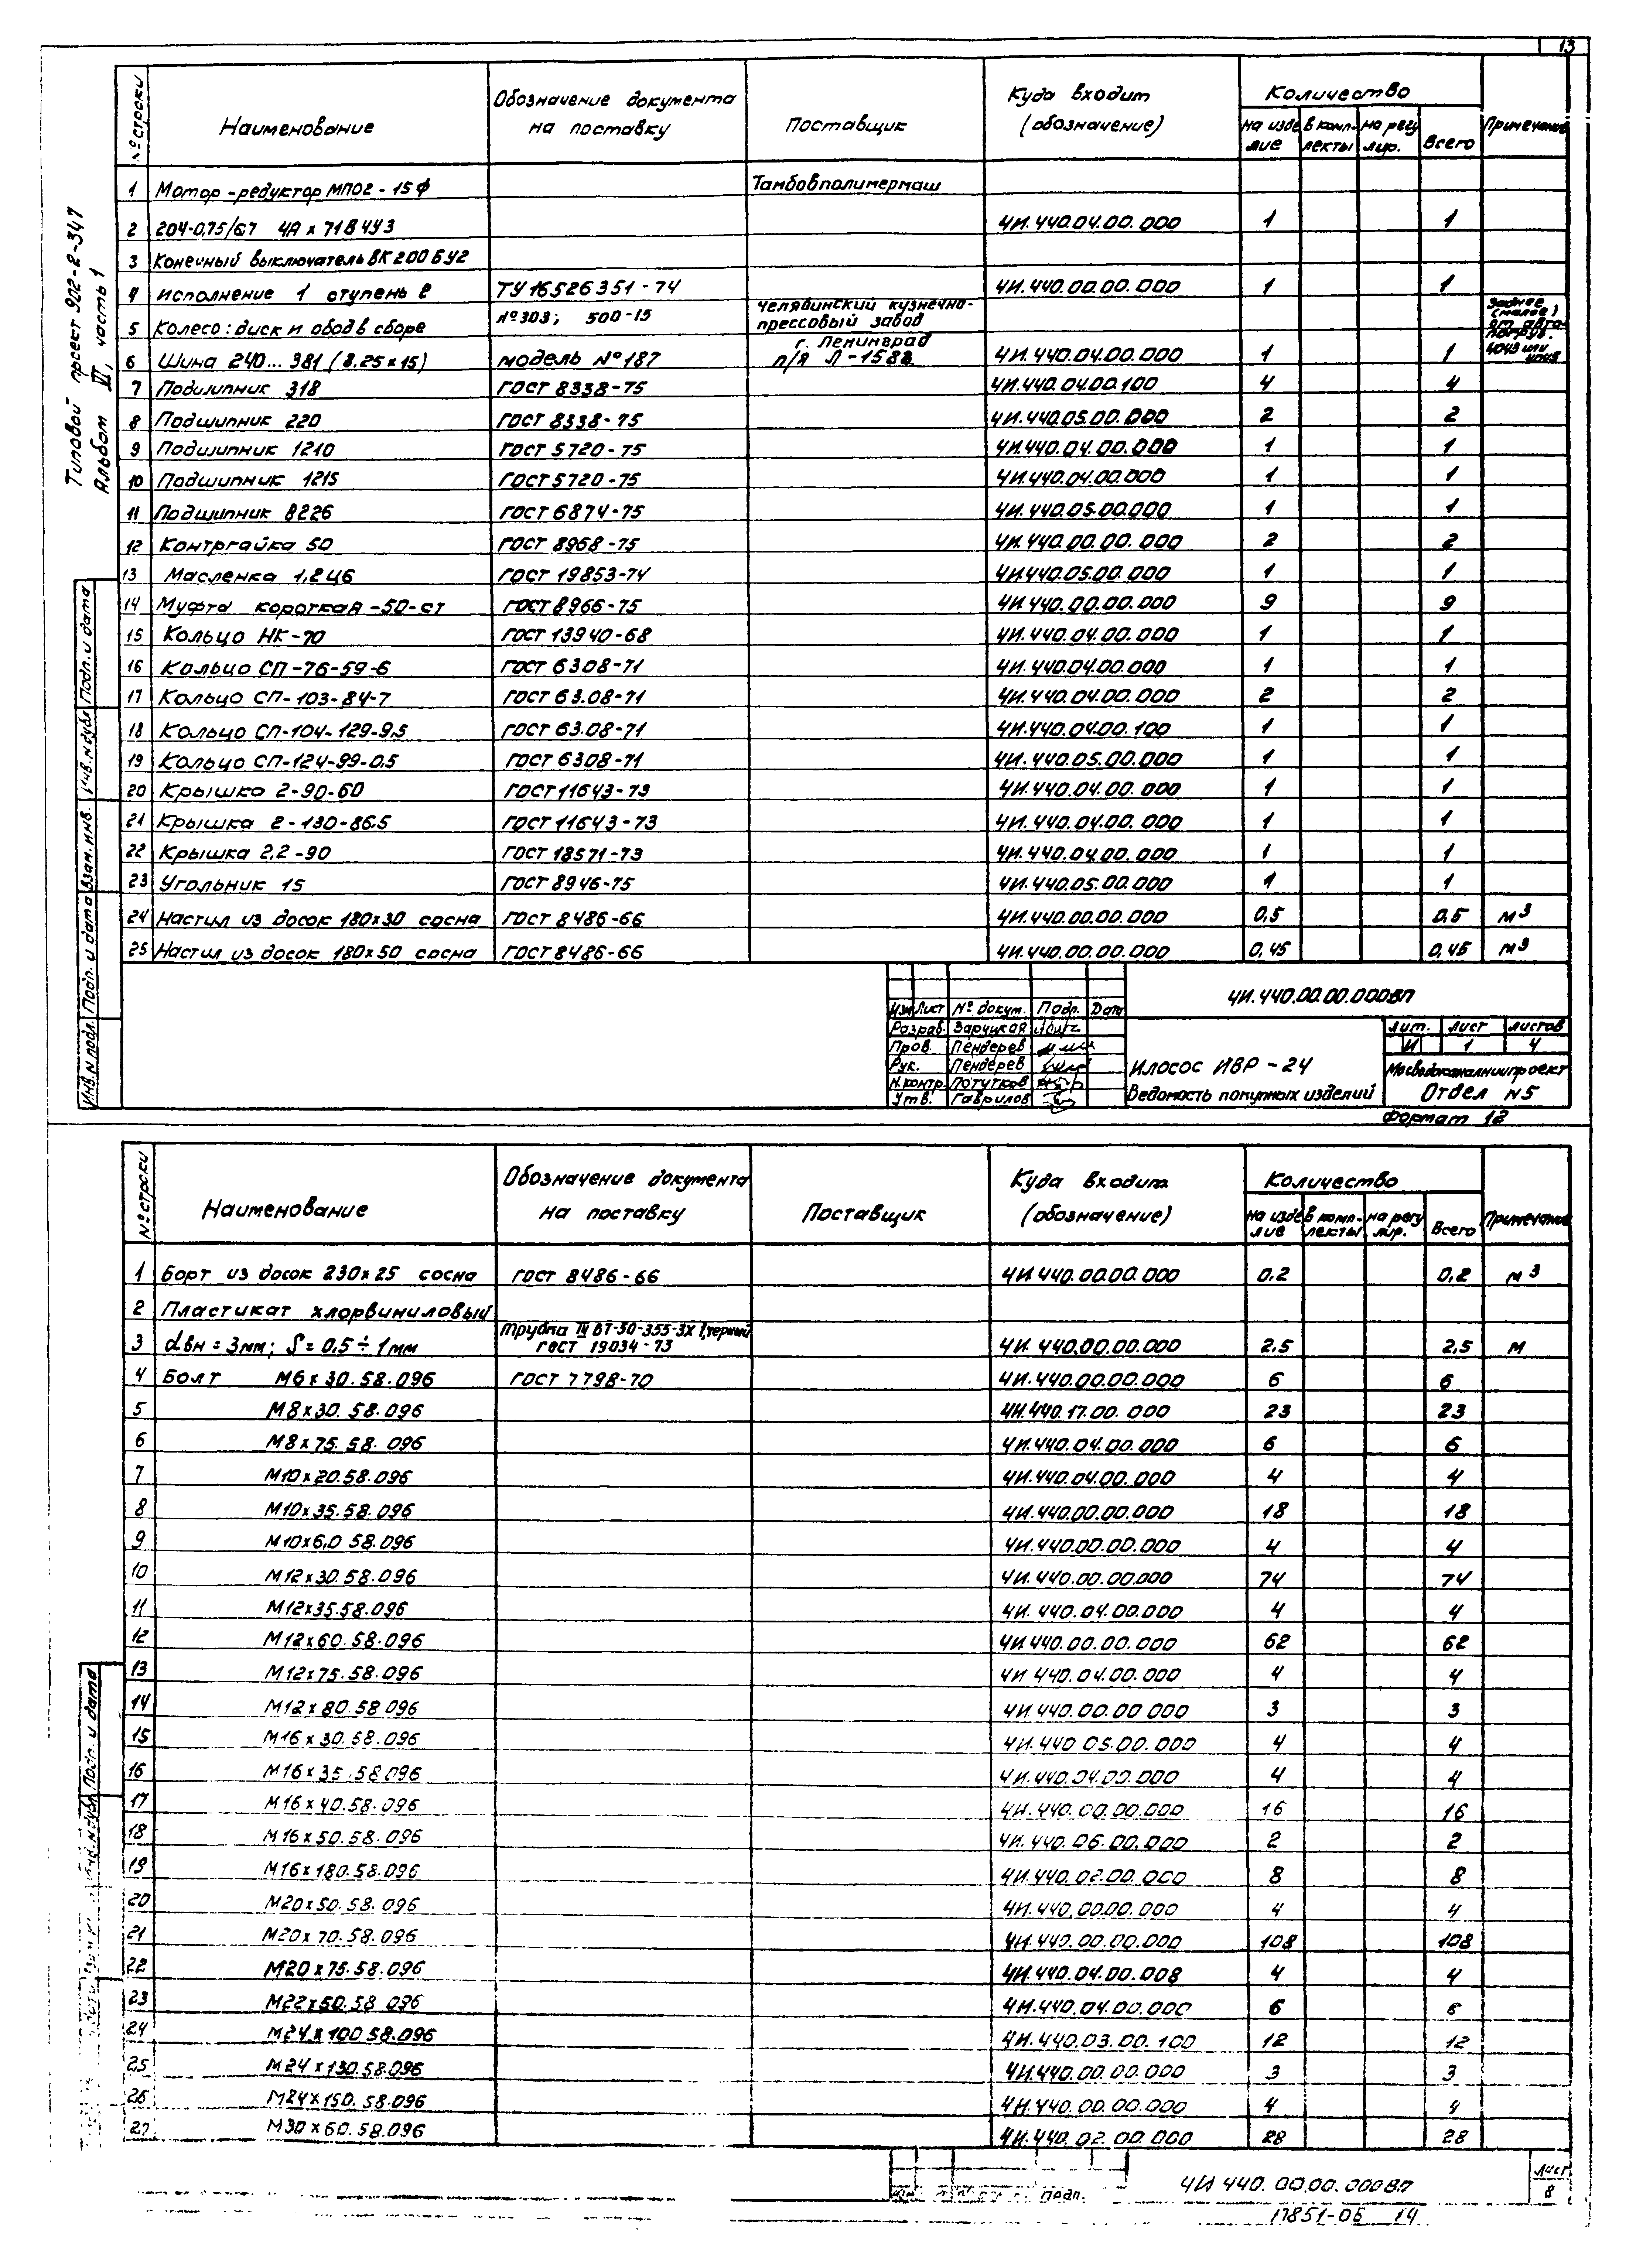 13
Типовой проект 902-2-347
Альбом VI, часть 1
№ строки Наименование Обозначение документа на поставку Поставщик Куда входит (обозначение) Количество на изделие в комплекты на регулир. Всего Примечание
1 Мотор-редуктор МПО2-15Ф Тамбовполимермаш
2 204-0,75/6,7 4А х 71В4У3 4И.440.04.00.000 1 1
3 Конечный выключатель ВК 200 БУ2
4 исполнение 1 ступень 2 ТУ16526351-74 4И.440.00.00.000 1 1
5 Колесо: диск и обод в сборе №303; 500-15 Челябинский кузнечно-прессовый завод заднее (малое) от авто-погруз.
6 Шина 240...381 (8.25х15) модель №187 г. Ленинград п/я Л-1588 4И.440.04.00.000 1 1 4043 или
7 Подшипник 318 ГОСТ 8338-75 4И.440.04.00.100 4 4
8 Подшипник 220 ГОСТ 8338-75 4И.440.05.00.000 2 2
9 Подшипник 1210 ГОСТ 5720-75 4И.440.04.00.000 1 1
10 Подшипник 1215 ГОСТ 5720-75 4И.440.04.00.000 1 1
11 Подшипник 8226 ГОСТ 6874-75 4И.440.05.00.000 1 1
12 Контргайка 50 ГОСТ 8968-75 4И.440.00.00.000 2 2
13 Масленка 1,2Ц6 ГОСТ 19853-74 4И.440.05.00.000 1 1
14 Муфта короткая-50-ст ГОСТ 8966-75 4И.440.00.00.000 9 9
15 Кольцо НК-70 ГОСТ 13940-68 4И.440.04.00.000 1 1
16 Кольцо СП-76-59-6 ГОСТ 6308-71 4И.440.04.00.000 1 1
17 Кольцо СП-103-84-7 ГОСТ 63.08-71 4И.440.04.00.000 2 2
18 Кольцо СП-104-129-9,5 ГОСТ 63.08-71 4И.440.04.00.100 1 1
19 Кольцо СП-124-99-0,5 ГОСТ 6308-71 4И.440.05.00.000 1 1
20 Крышка 2-90-60 ГОСТ 11643-73 4И.440.04.00.000 1 1
21 Крышка 2-130-86,5 ГОСТ 11643-73 4И.440.04.00.000 1 1
22 Крышка 2.2-90 ГОСТ 18571-73 4И.440.04.00.000 1 1
23 Угольник 15 ГОСТ 8946-75 4И.440.05.00.000 1 1
24 Настил из досок 180х30 сосна ГОСТ 8486-66 4И.440.00.00.000 0,5 0,5 м3
25 Настил из досок 180х50 сосна ГОСТ 8486-66 4И.440.00.00.000 0,45 0,45 м3
Инв. N подл. Подп. и дата Взам. инв. Инв. N дубл Подп. и дата
4И.440.00.00.000ВП
Изм Лист № докум. Подп. Дата
Разраб. Заруцкая
Пров. Пендерев
Рук. Пендерев
Н.контр. Потутков
Утв. Гаврилов
Илосос ИВР-24
Ведомость покупных изделий
Лит. Лист Листов
И 1 4
Мосводоканалниипроект
Отдел N5
Формат 12
№ строки Наименование Обозначение документа на поставку Поставщик Куда входит (обозначение) Количество на изделие в комплекты на регулир. Всего Примечание
1 Борт из досок 230х25 сосна ГОСТ 8486-66 4И.440.00.00.000 0,2 0,2 м3
2 Пластикат хлорвиниловый
3 dвн = 3мм; S = 0,5 ÷ 1мм Трубка IV ВТ-50-355-3Х 1,черный ГОСТ 19034-73 4И.440.00.00.000 2,5 2,5 м
4 Болт М6х30.58.096 ГОСТ 7798-70 4И.440.00.00.000 6 6
5 М8х30.58.096 4И.440.17.00.000 23 23
6 М8х75.58.096 4И.440.04.00.000 6 6
7 М10х20.58.096 4И.440.04.00.000 4 4
8 М10х35.58.096 4И.440.00.00.000 18 18
9 М10х6,0 58.096 4И.440.00.00.000 4 4
10 М12х30.58.096 4И.440.00.00.000 74 74
11 М12х35.58.096 4И.440.04.00.000 4 4
12 М12х60.58.096 4И.440.00.00.000 62 62
13 М12х75.58.096 4И 440.04.00.000 4 4
14 М12х80.58.096 4И.440.00.00 000 3 3
15 М16х30.58.096 4И.440 05.00.000 4 4
16 М16х35.58.096 4И.440.04.00.000 4 4
17 М16х40.58.096 4И.440.00.00.000 16 16
18 М16х50.58.096 4И.440.06.00.000 2 2
19 М16х180.58.096 4И.440.02.00.000 8 8
20 М20х50.58.096 4И.440.00.00.000 4 4
21 М20х70.58.096 4И.440.00.00.000 108 108
22 М20х75.58.096 4И.440.04.00.008 4 4
23 М22х50.58 096 4И.440.04.00.000 6 6
24 М24х100 58.096 4И.440.03.00.100 12 12
25 М24х130.58.096 4И.440.00.00.000 3 3
26 М24х150.58.096 4И.440.00.00.000 4 4
27 М30х60.58.096 4И.440.02.00.000 28 28
Подп. и дата
подп.
4И 440.00.00.000ВП
Лист
8
17851-06 14